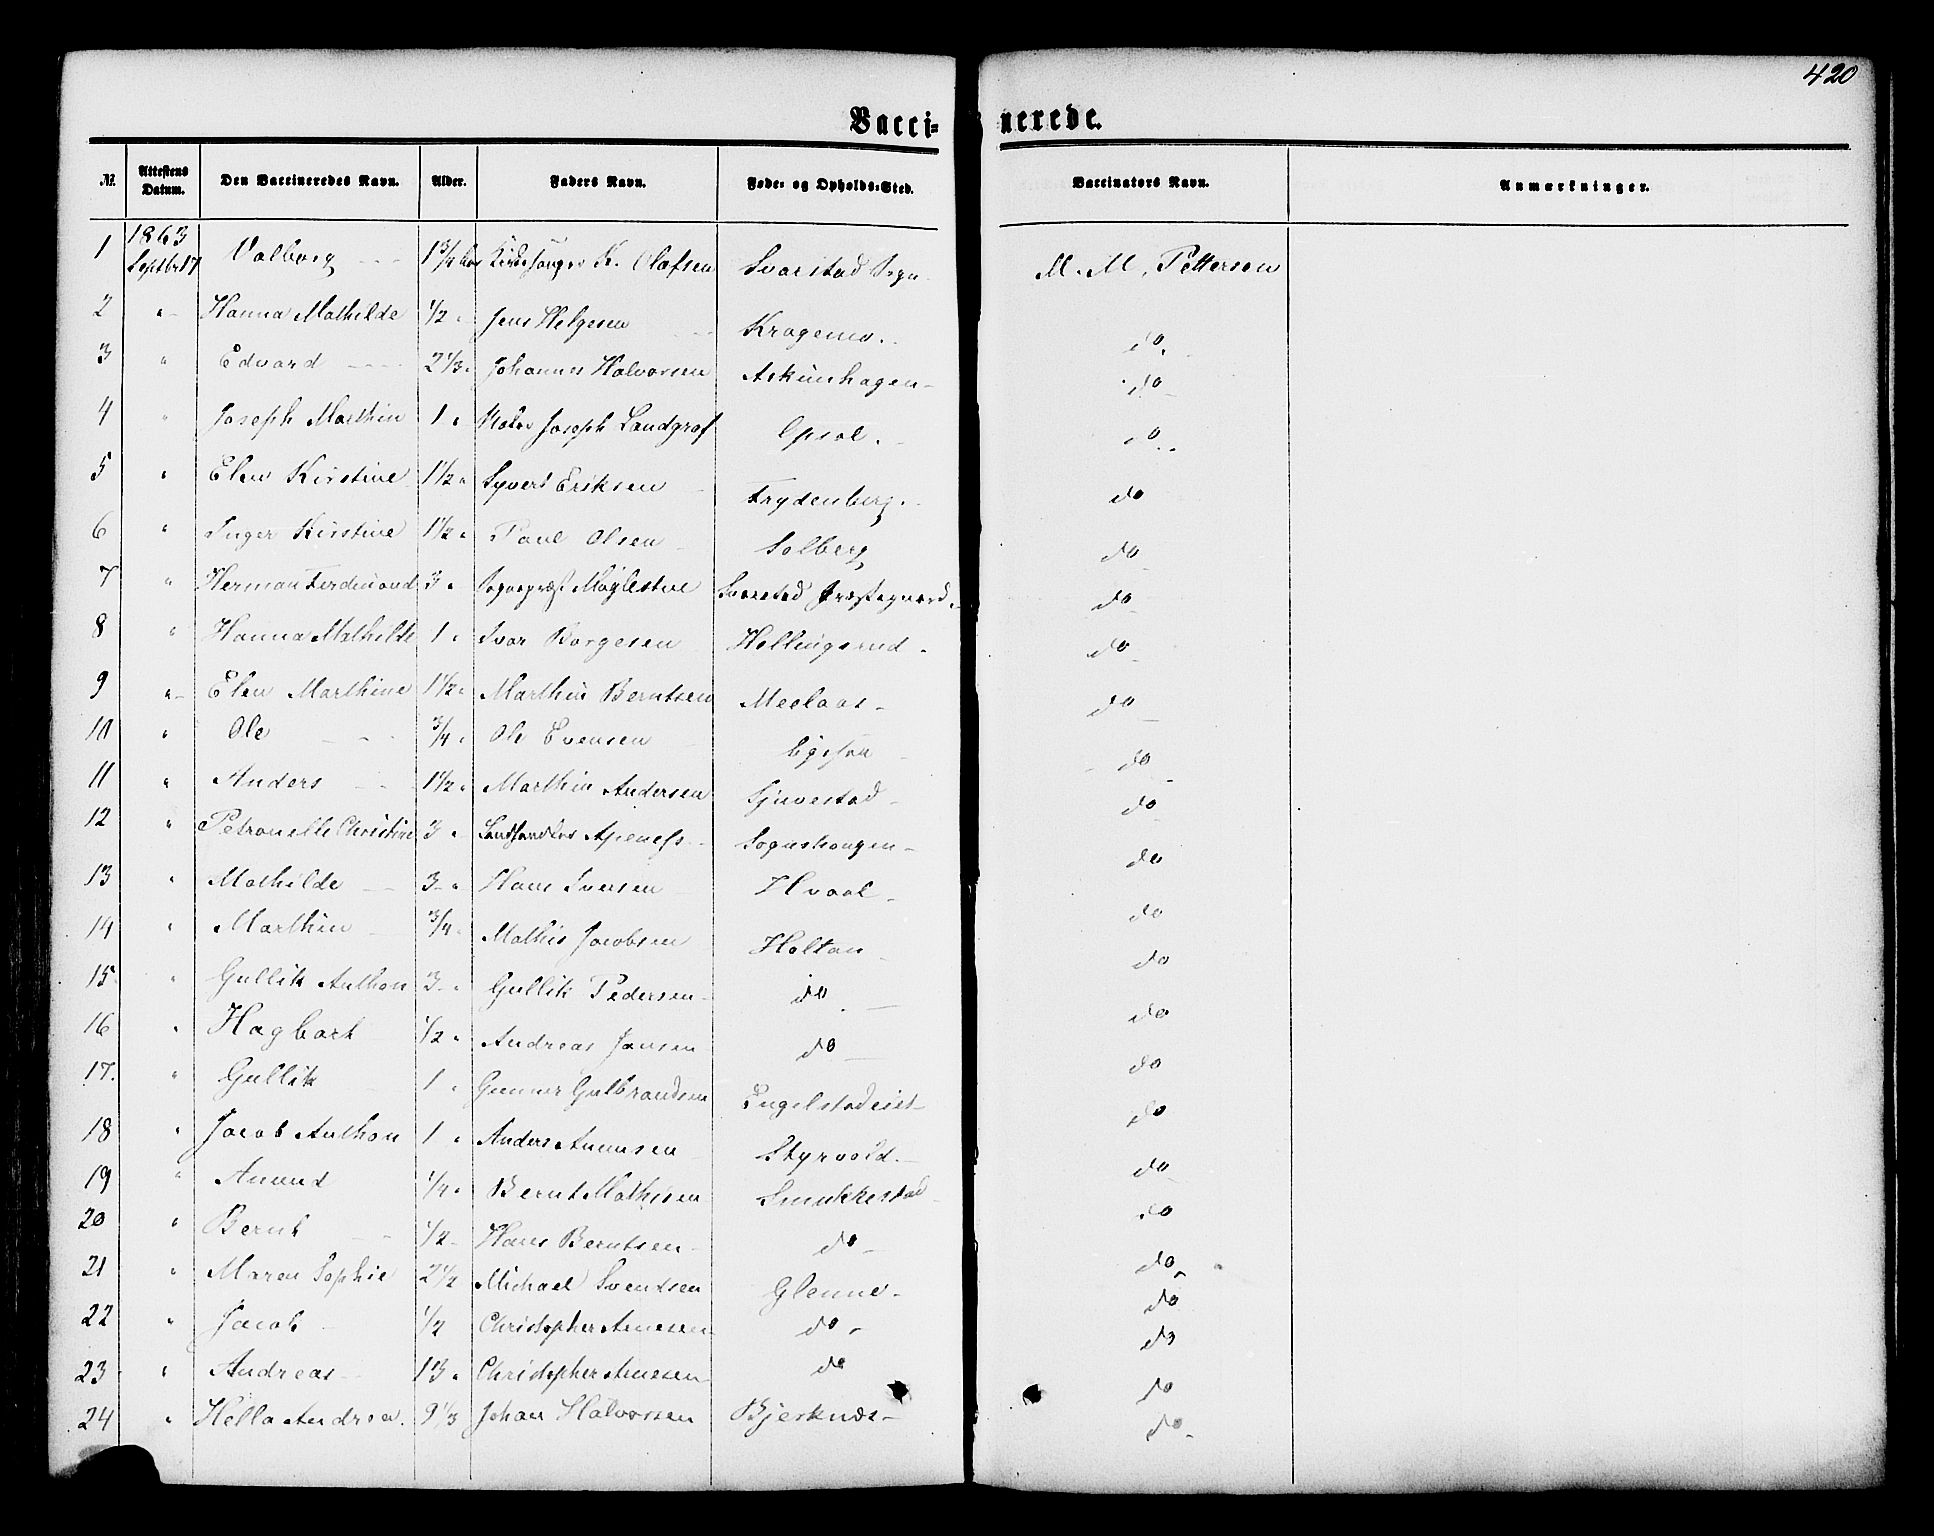 420
Vaccinerede.
№ Attestens Datum. Den Vaccineredes Navn. Alder. Faders Navn. Føde- og Opholds-Sted. Vaccinators Navn. Anmærkninger.
1 1863 Septbr 17 Valborg 1 3/4 Kirkesanger K. Olafsen Svarstad Sogn M. M. Pettersen
2 " Hanna Mathilde 1/2 " Jens Helgesen Kragemo. do.
3 " Edvard 2 1/3 " Johannes Halvorsen Askimhagen do
4 " Joseph Marthin 1 " Joseph Landgraf Opsal. do
5 " Elen Kirstine 1 1/2 " Syvert Eriksen Frydenberg. do
6 " Inger Kirstine 1 1/2 " Paul Olsen Solberg do
7 " Herman Ferdinand 3 " Sognepræst Møglestue Svarstad Præstegaard do
8 " Hanna Mathilde 1 " Ivar Borgesen Hellingsrud do
9 " Elen Marthine 1 1/2 " Marthin Berntsen Meelaas do
10 " Ole 3/4 " Ole Evensen do
11 " Anders 1 1/2 " Marthin Andersen Sjuvestad do
12 " Petronelle Christine 3 " Landhandler Apeness Sognshaugen do
13 " Mathilde 3 " Hans Iversen Hvaal do
14 " Marthin 3/4 " Mathis Jacobsen Holtan do
15 " Gullik Anthon 3 " Gullik Pedersen do do
16 " Hagbart 1/2 " Andreas Jansen do do
17. " Gullik 1 " Gunner Gulbrandsen Engelstadeiet do
18 " Jacob Anthon 1 " Anders Anunsen Styrvold do
19 " Anund 1/4 " Bernt Mathisen Smukkestad do
20 " Bernt 1/2 Hans Berntsen do do
21 " Maren Sophie 2 1/2 Michael Sventsen Glenne do
22 " Jacob 1/2 Christopher Arnesen do do
23 " Andreas 13 " Christopher Arnesen do do
24 " Hella Andrea 9 1/3 Johan Halvorsen Bjerknæs do
do